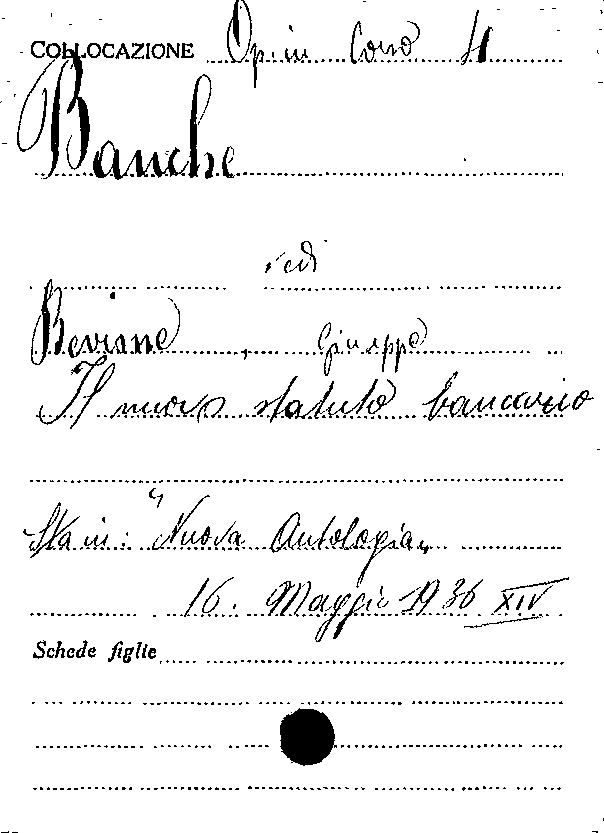 COLLOCAZIONE Op. in Corso 4
Banche
vedi
Bevione, Giuseppe
Il nuovo statuto bancario
Sta in: "Nuova Antologia„
16. Maggio 1936 XIV
Schede figlie